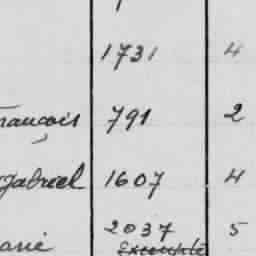 1731 4
François 791 2
Gabriel 1607 4
2037 5
arie Exempté